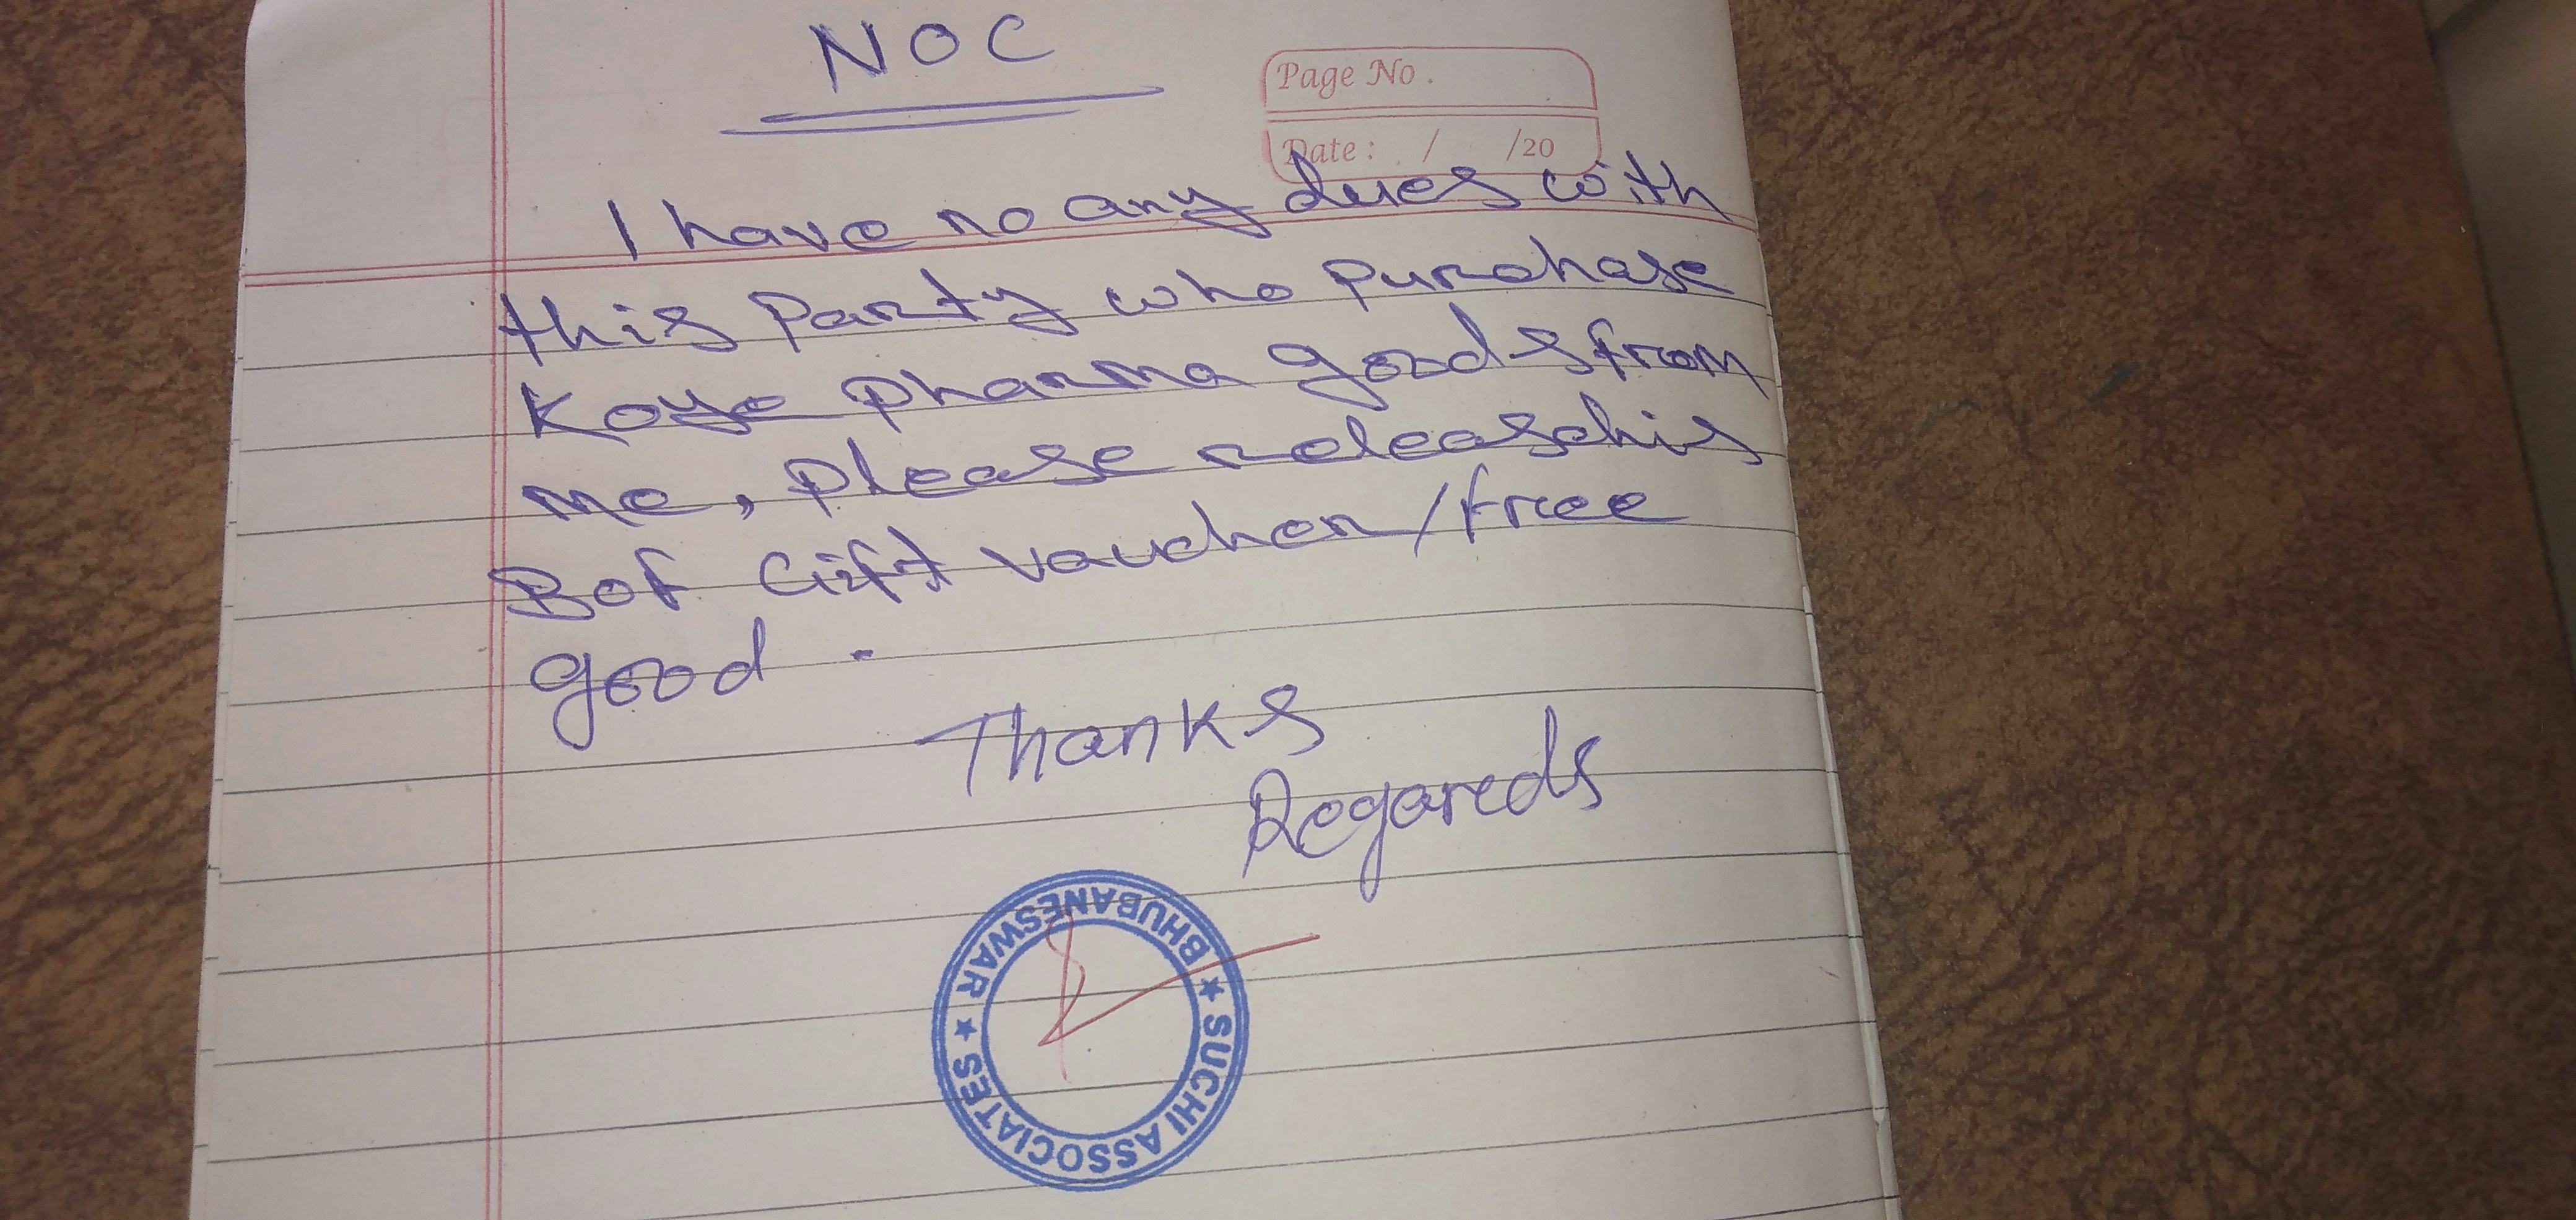 NOC
Page No.
Date: / /20
I have no any dues with
this party who purchase
Koye pharma goods from
me, please release his
Bof Gift vaucher/free
good.
Thanks
Regareds
SUCHI ASSOCIATES ★ BHUBANESWAR ★